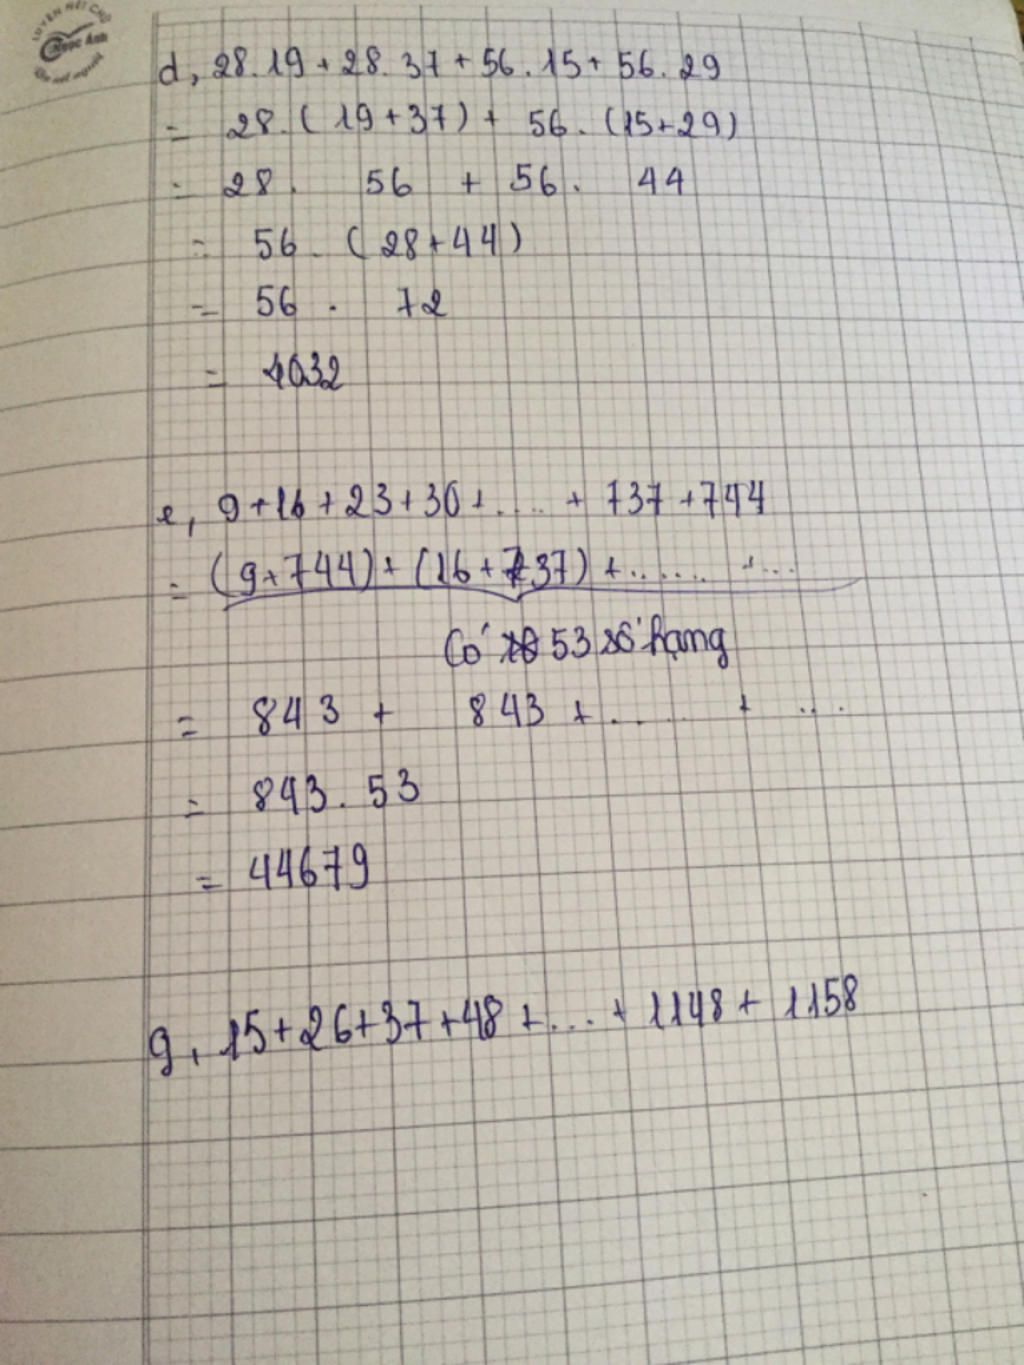 LUYỆN NÉT CHỮ
Ngọc Anh
d, 28.19 + 28.37 + 56.15 + 56.29
= 28.(19+37) + 56.(15+29)
= 28. 56 + 56. 44
= 56.(28+44)
= 56. 72
= 4032
e, 9+16+23+30+.... + 737+744
= (9+744)+(16+737)+...... +...
Có 53 số hạng
= 843 + 843 +..... + ....
= 843.53
= 44679
g, 15+26+37+48+...+1148+1158